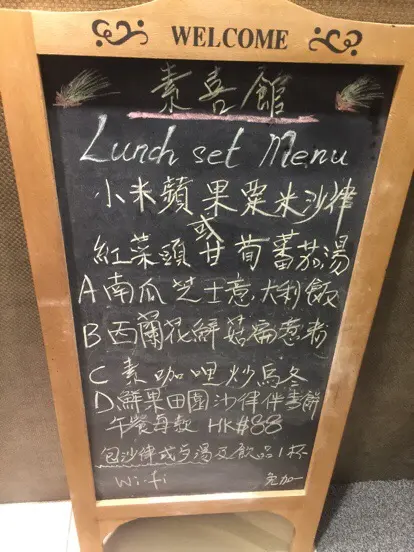 WELCOME
素喜館
Lunch set Menu
小米蘋果粟米沙律
或
紅菜頭甘荀蕃茄湯
A南瓜芝士意大利飯
B西蘭花鮮菇扁意粉
C 素咖哩炒烏冬
D.鮮果田園沙律伴薯餅
午餐每款 HK#88
包沙律或与湯及飲品1杯
Wi-fi 免加一